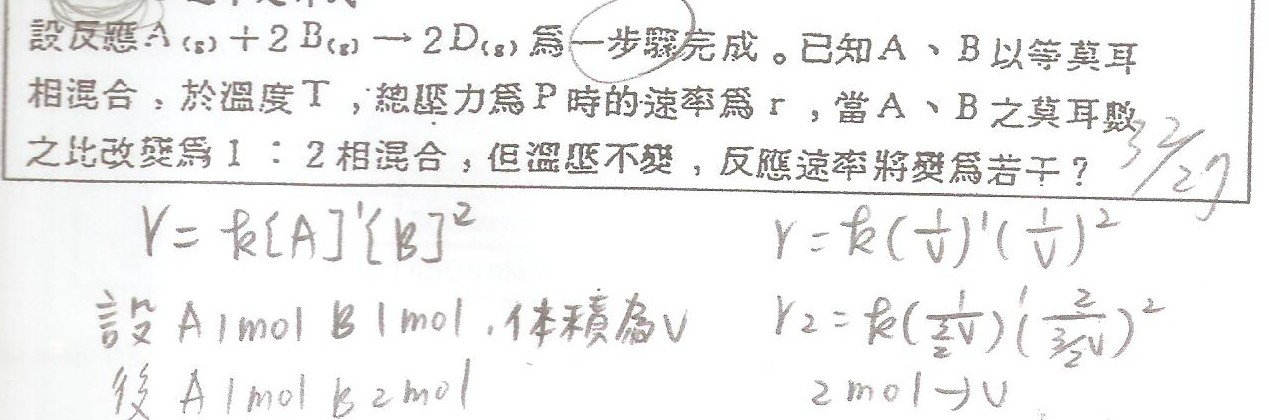 設反應A(g)+2B(g)→2D(g)為一步驟完成。已知A、B以等莫耳
相混合,於溫度T,總壓力為P時的速率為r,當A、B之莫耳數
之比改變為1:2相混合,但溫壓不變,反應速率將變為若干?
32/27
r=k[A]¹[B]² r=k(1/V)¹(1/V)²
設 A 1mol B 1mol,体積為V r2=k(1/(3/2V))¹(2/(3/2V))²
後 A 1mol B 2mol 2mol→V